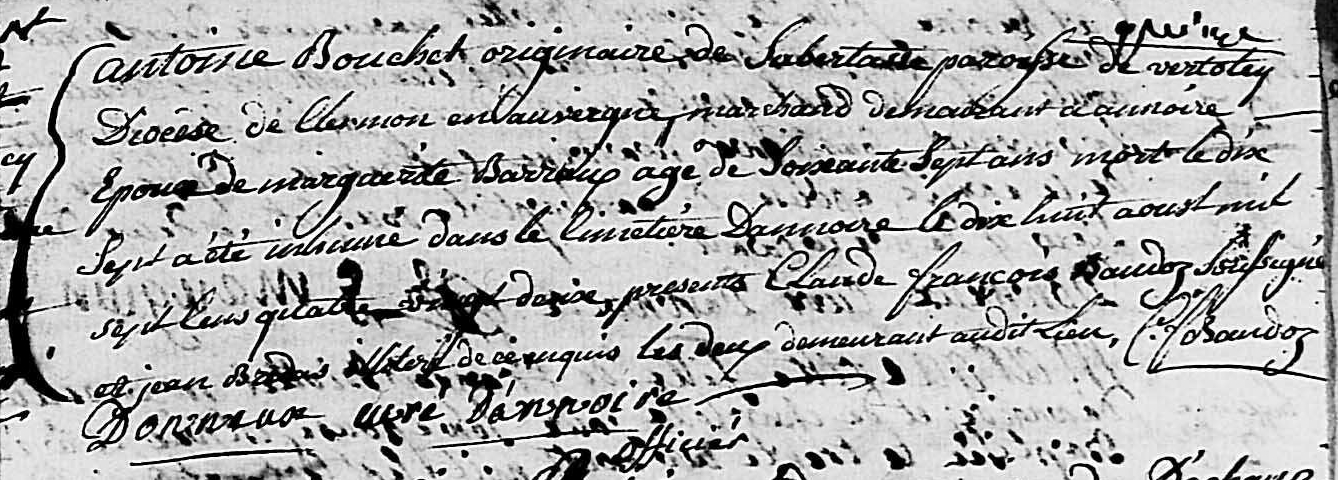 antoine Bouchet originaire de Sabertade paroisse de vertolay
Diocese de Clermon en auvergne, marchand demeurant a annoire
Epoux de marguerite Barraux agé de Soixante Sept ans mort le dix
Sept a été inhumé dans le Cimetiére Dannoire le dix huit aoust mil
sept Cens quatre vingt deux, presents Claude françois Baudoz Soussigné
et jean illiteré de ce enquis les deux demeurant audit Lieu, C f Baudoz
Donneux curé Dannoire
officiés